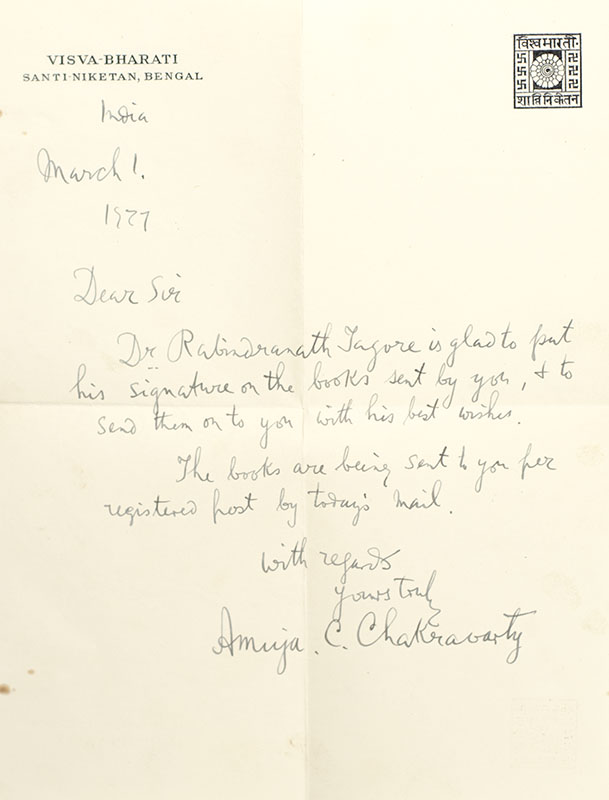 VISVA-BHARATI
SANTI-NIKETAN, BENGAL
विश्वभारती
शान्तिनिकेतन
India
March 1.
1927
Dear Sir
Dr. Rabindranath Tagore is glad to put
his signature on the books sent by you, & to
send them on to you with his best wishes.
The books are being sent to you per
registered post by today's mail.
with regards
yours truly
Amiya. C. Chakravarty